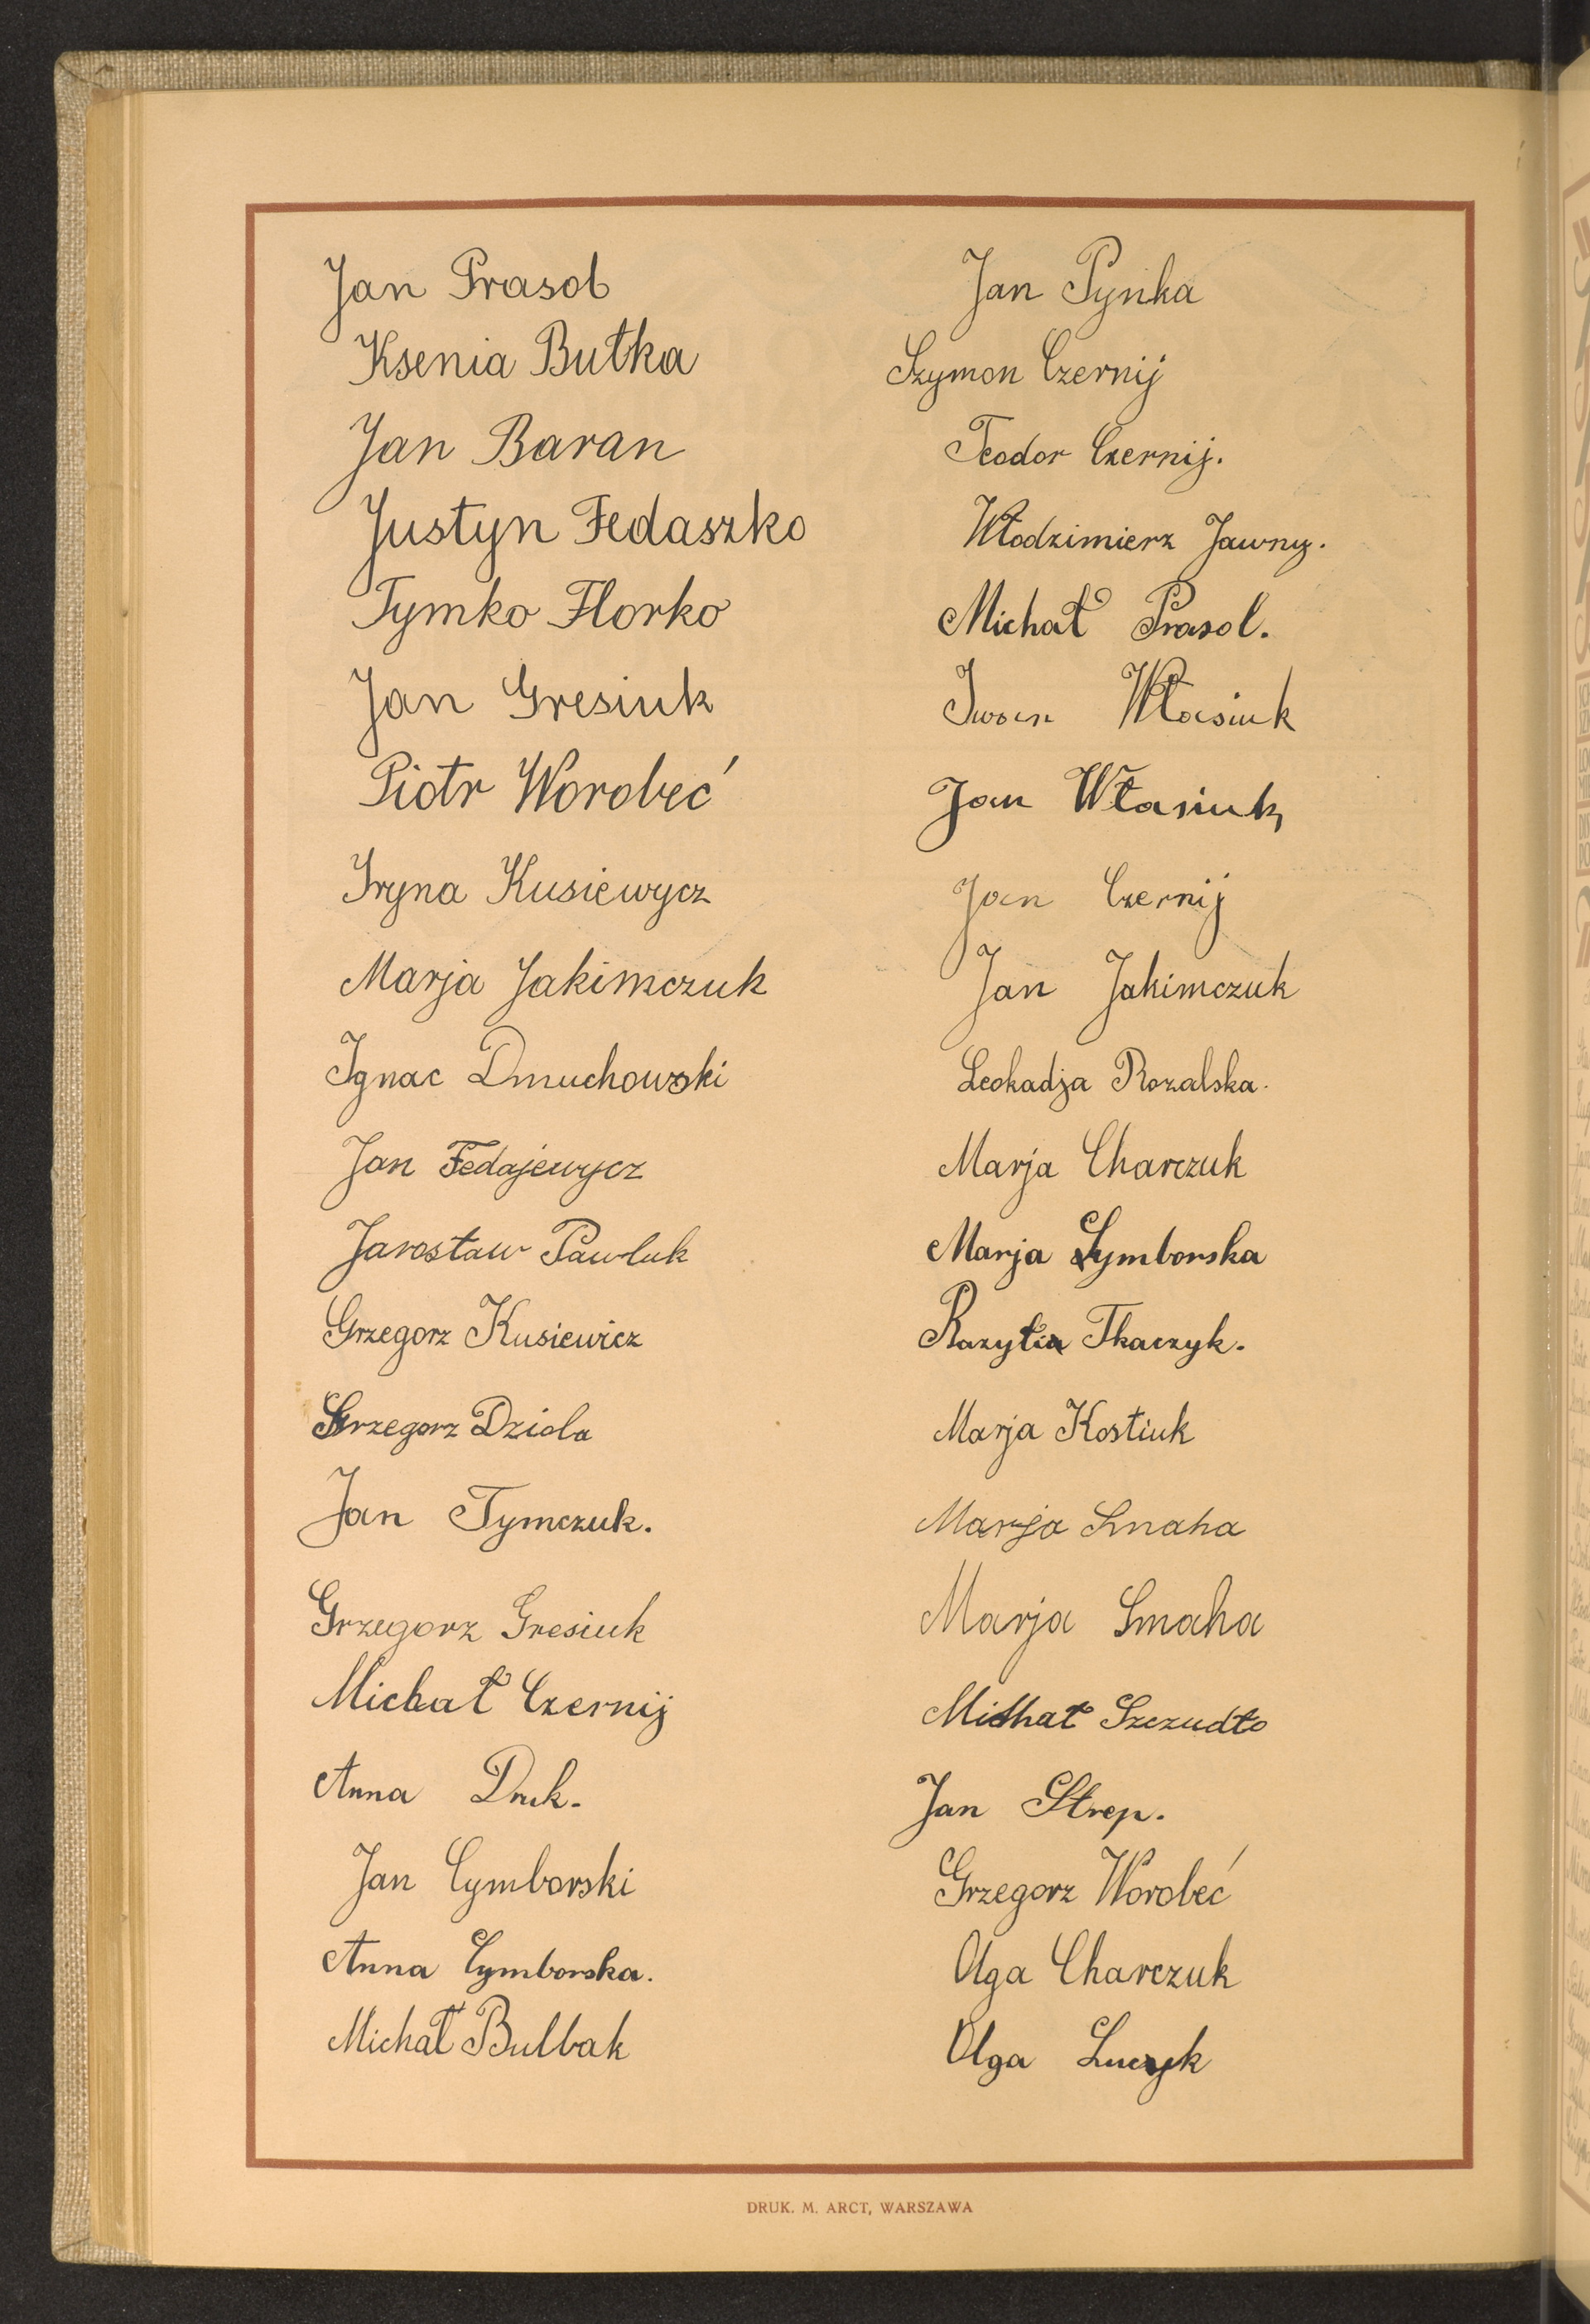 Jan Prasol
Ksenia Butka
Jan Baran
Justyn Fedaszko
Tymko Florko
Jan Gresiuk
Piotr Worobeć
Iryna Kusiewycz
Marja Jakimczuk
Ignac Dmuchowski
Jan Fedajewycz
Jarosław Pawluk
Grzegorz Kusiewicz
Grzegorz Dziola
Jan Tymczuk.
Grzegorz Gresiuk
Michał Czernij
Anna Druk.
Jan Cymborski
Anna Cymborska.
Michał Bulbak
Jan Pynka
Szymon Czernij
Teodor Czernij.
Włodzimierz Jawny.
Michał Prasol.
Iwan Własiuk
Jan Własiuk
Jan Czernij
Jan Jakimczuk
Leokadja Rozalska.
Marja Charczuk
Marja Cymborska
Tkaczyk.
Marja Kostiuk
Marja Smaha
Marja Smaha
Michał Szczudło
Jan Strep.
Grzegorz Worobeć
Olga Charczuk
Olga
DRUK. M. ARCT, WARSZAWA